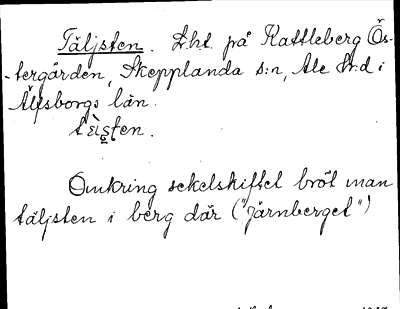 Täljsten. Lht på Kattleberg Ös-
-tergården, Skepplanda s:n, Ale h:d i
Älfsborgs län.
Omkring sekelskiftet bröt man
täljsten i berg där ("Järnberget")